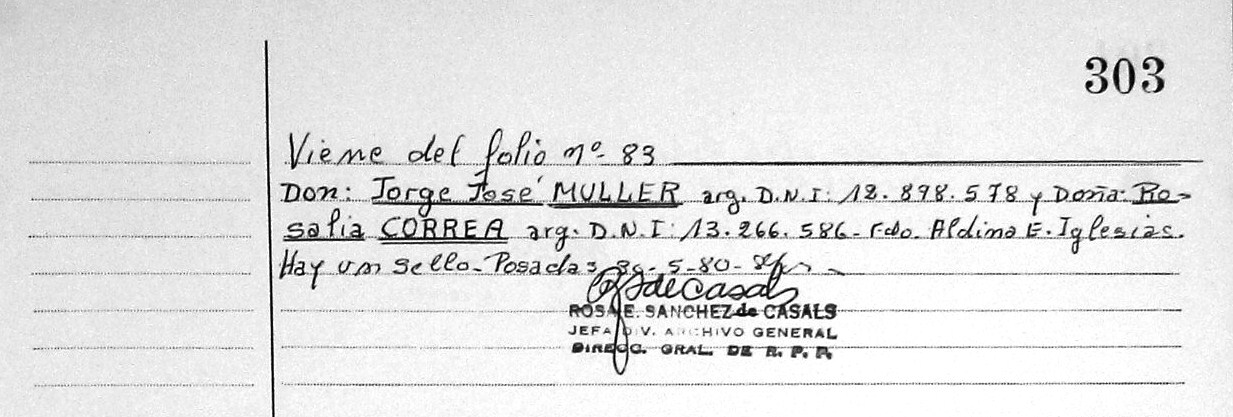 303
Viene del folio nº 83
Don: Jorge José MULLER arg. D.N.I: 12.898.578 y Doña: Ro-
salia CORREA arg. D.N.I: 13.266.586 - Fdo. Aldina E. Iglesias.
Hay un sello - Posadas, 30-5-80 -
ROSA E. SANCHEZ de CASALS
JEFA DIV. ARCHIVO GENERAL
DIRECC. GRAL. DE R. P. P.